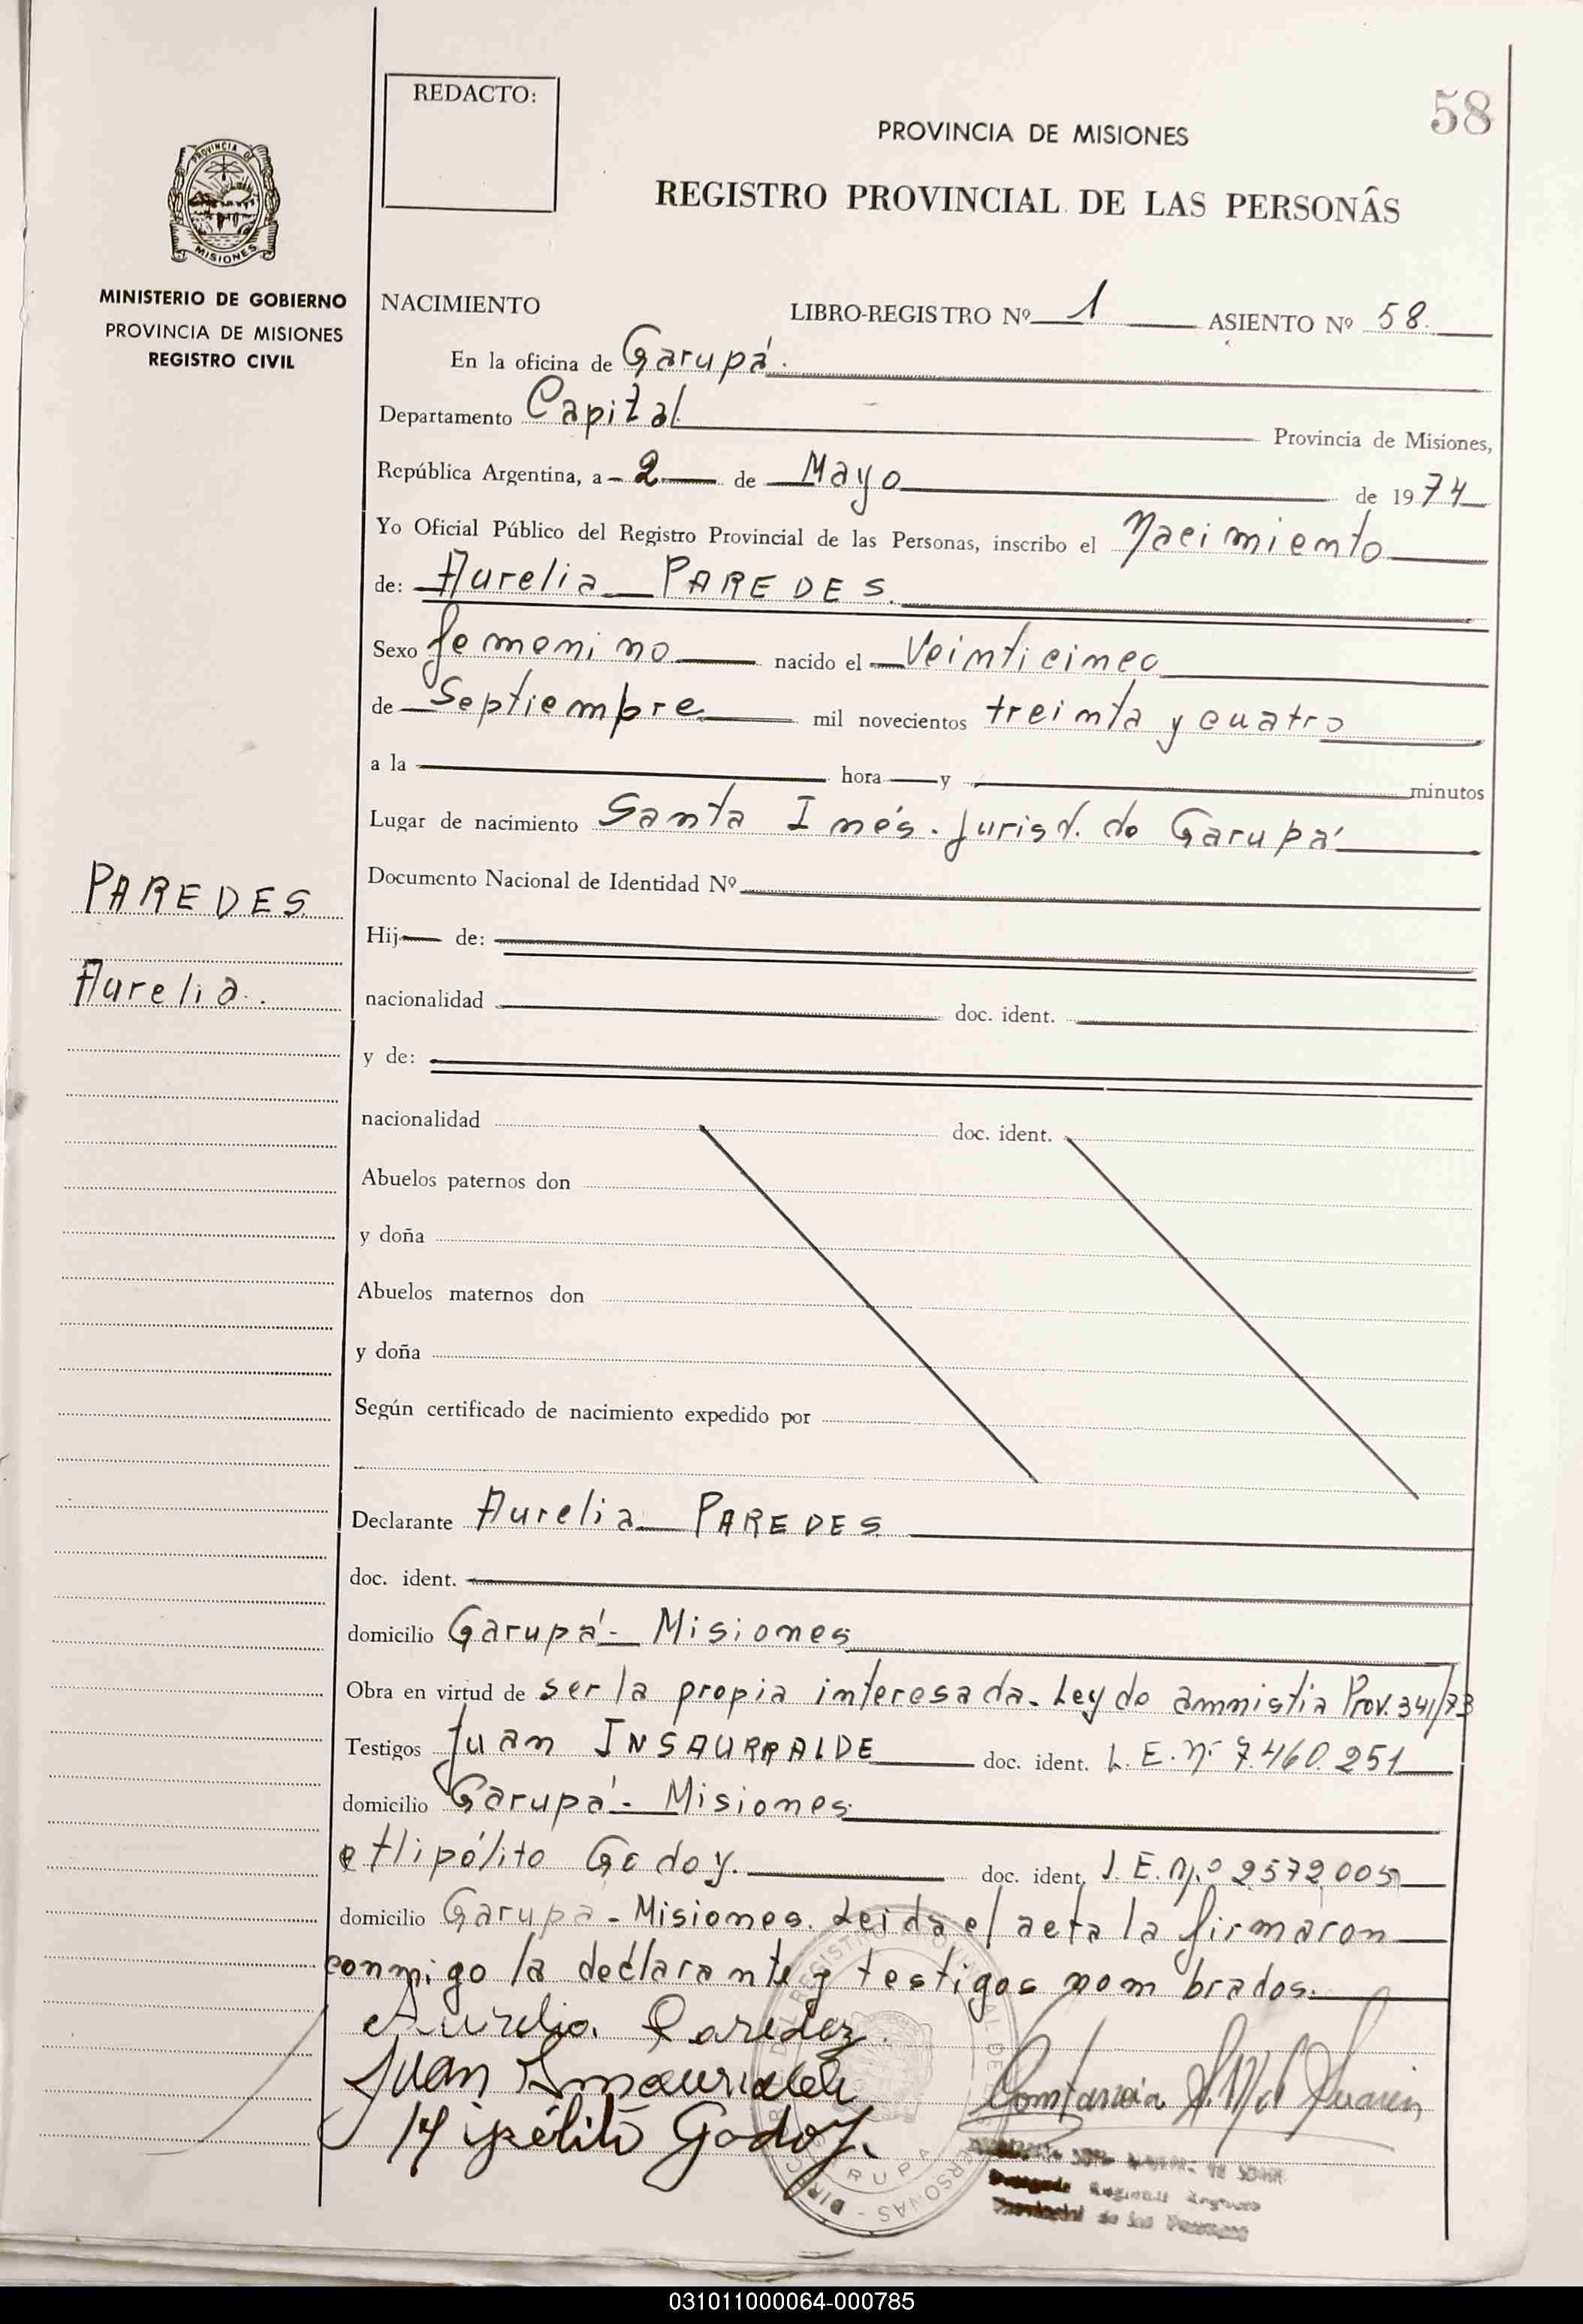 REDACTO:
58
PROVINCIA DE MISIONES
REGISTRO PROVINCIAL DE LAS PERSONAS
PROVINCIA DE
MISIONES
MINISTERIO DE GOBIERNO
PROVINCIA DE MISIONES
REGISTRO CIVIL
NACIMIENTO LIBRO-REGISTRO Nº 1 ASIENTO Nº 58.
En la oficina de Garupá.
Departamento Capital Provincia de Misiones,
República Argentina, a 2 de Mayo de 1974
Yo Oficial Público del Registro Provincial de las Personas, inscribo el Nacimiento
de: Aurelia PAREDES.
Sexo femenino nacido el Veinticinco
de Septiembre mil novecientos treinta y cuatro
a la hora y minutos
Lugar de nacimiento Santa Inés. Jurisd. de Garupá
Documento Nacional de Identidad Nº
PAREDES
Aurelia.
Hij de:
nacionalidad doc. ident.
y de:
nacionalidad doc. ident.
Abuelos paternos don
y doña
Abuelos maternos don
y doña
Según certificado de nacimiento expedido por
Declarante Aurelia PAREDES
doc. ident.
domicilio Garupá - Misiones
Obra en virtud de ser la propia interesada. Ley de amnistia Prov. 341/73
Testigos Juan INSAURRALDE doc. ident. L. E. Nº 7.460.251
domicilio Garupá - Misiones
e Hipólito Godoy. doc. ident. L. E. Nº 2572005
domicilio Garupá - Misiones. Leida el acta la firmaron
conmigo la declarante y testigos nombrados.
Aurelia Paredez
Juan Insaurralde
Hipólito Godoy.
Constancia
Provincial de las Personas
031011000064-000785